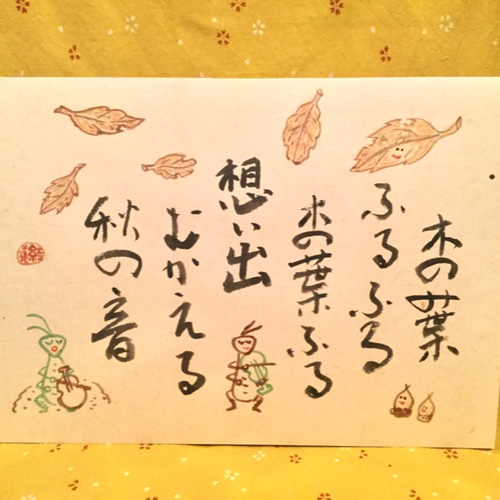 木の葉
ふるふる
木の葉ふる
想い出
むかえる
秋の音